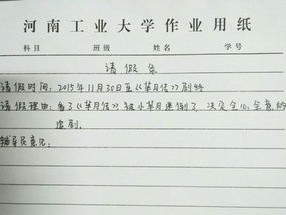 河南工业大学作业用纸
科目 班级 姓名 学号
请假条
请假时间：2015年11月30日至《芈月传》剧终
请假理由：为了《芈月传》被小芈月迷倒了，决定全心全意的
追剧.
辅导员意见：